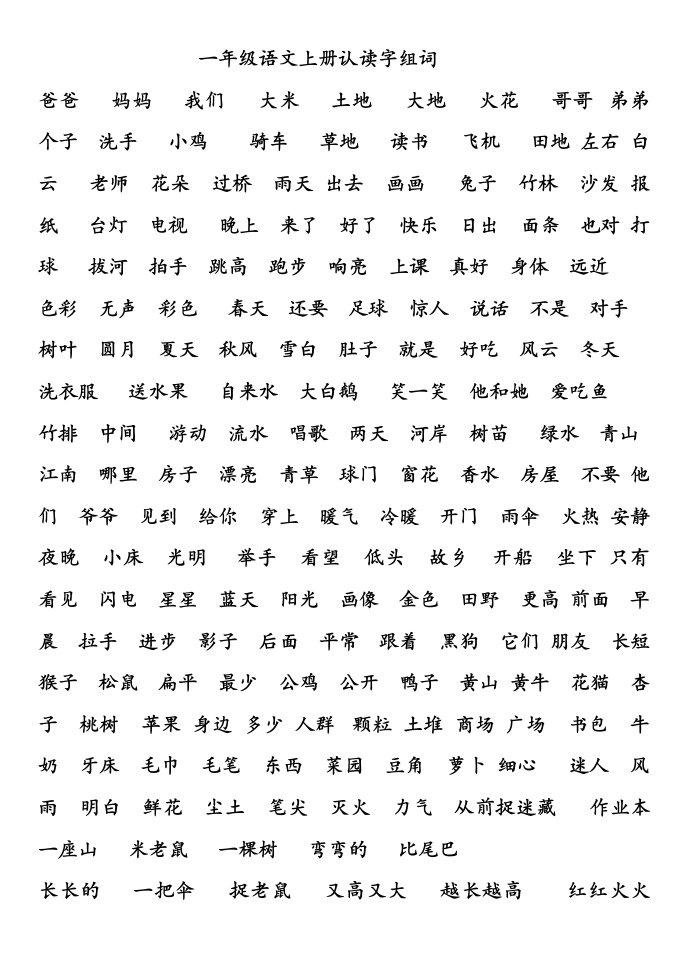 一年级语文上册认读字组词
爸爸 妈妈 我们 大米 土地 大地 火花 哥哥 弟弟
个子 洗手 小鸡 骑车 草地 读书 飞机 田地 左右 白
云 老师 花朵 过桥 雨天 出去 画画 兔子 竹林 沙发 报
纸 台灯 电视 晚上 来了 好了 快乐 日出 面条 也对 打
球 拔河 拍手 跳高 跑步 响亮 上课 真好 身体 远近
色彩 无声 彩色 春天 还要 足球 惊人 说话 不是 对手
树叶 圆月 夏天 秋风 雪白 肚子 就是 好吃 风云 冬天
洗衣服 送水果 自来水 大白鹅 笑一笑 他和她 爱吃鱼
竹排 中间 游动 流水 唱歌 两天 河岸 树苗 绿水 青山
江南 哪里 房子 漂亮 青草 球门 窗花 香水 房屋 不要 他
们 爷爷 见到 给你 穿上 暖气 冷暖 开门 雨伞 火热 安静
夜晚 小床 光明 举手 看望 低头 故乡 开船 坐下 只有
看见 闪电 星星 蓝天 阳光 画像 金色 田野 更高 前面 早
晨 拉手 进步 影子 后面 平常 跟着 黑狗 它们 朋友 长短
猴子 松鼠 扁平 最少 公鸡 公开 鸭子 黄山 黄牛 花猫 杏
子 桃树 苹果 身边 多少 人群 颗粒 土堆 商场 广场 书包 牛
奶 牙床 毛巾 毛笔 东西 菜园 豆角 萝卜 细心 迷人 风
雨 明白 鲜花 尘土 笔尖 灭火 力气 从前捉迷藏 作业本
一座山 米老鼠 一棵树 弯弯的 比尾巴
长长的 一把伞 捉老鼠 又高又大 越长越高 红红火火